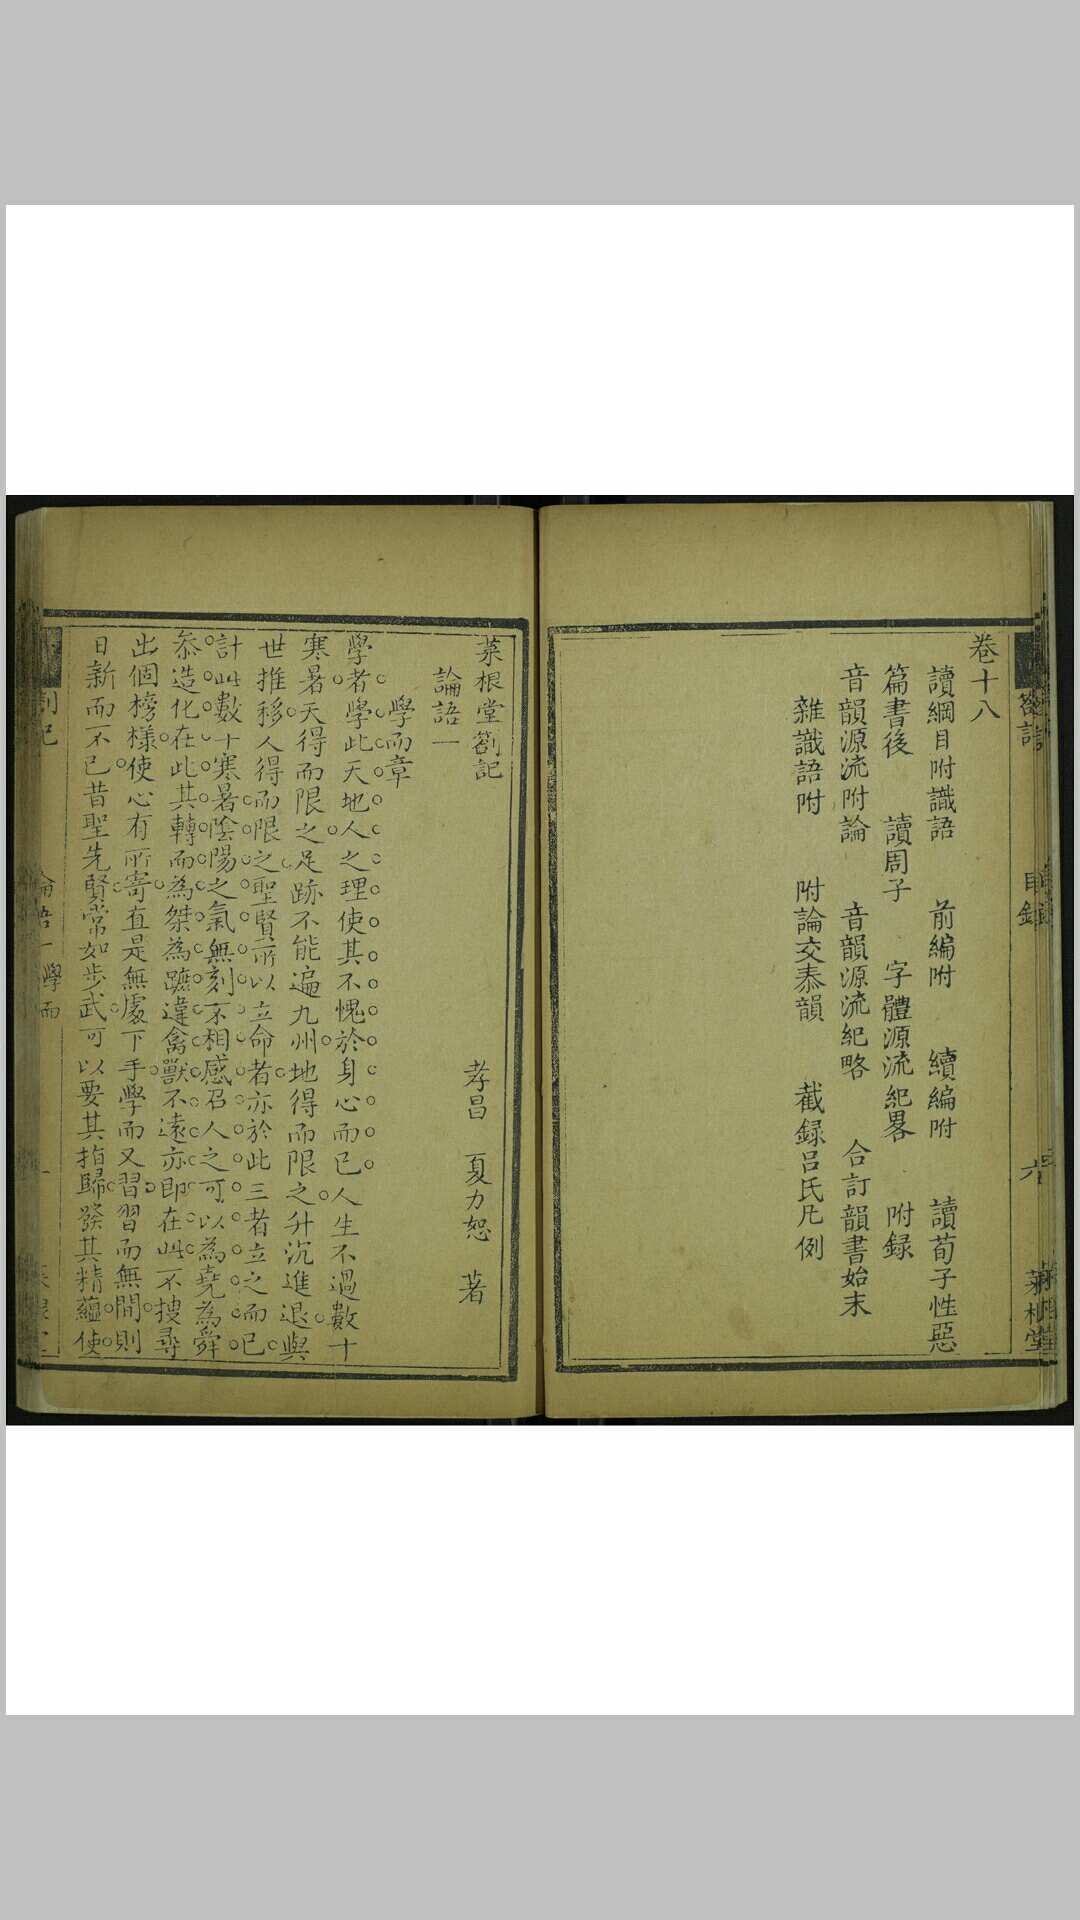 卷十八
讀綱目附識語 前編附 續編附 讀荀子性惡
篇書後 讀周子 字體源流紀畧 附録
音韻源流附論 音韻源流紀略 合訂韻書始末
雜識語附 附論交泰韻 截録呂氏凡例
目録
六
菜根堂劄記
孝昌 夏力恕 著
論語一
學而章
學者學此天地人之理使其不愧於身心而已人生不過數十
寒暑天得而限之足跡不能遍九州地得而限之升沉進退與
世推移人得而限之聖賢所以立命者亦於此三者立之而已
計此數十寒暑陰陽之氣無刻不相感召人之可以為堯為舜
叅造化在此其轉而為桀為蹠違禽獸不遠亦即在此不搜尋
出個榜樣使心有所寄直是無處下手學而又習習而無間則
日新而不已昔聖先賢常如步武可以要其指歸發其精蘊使
論語一 學而
一